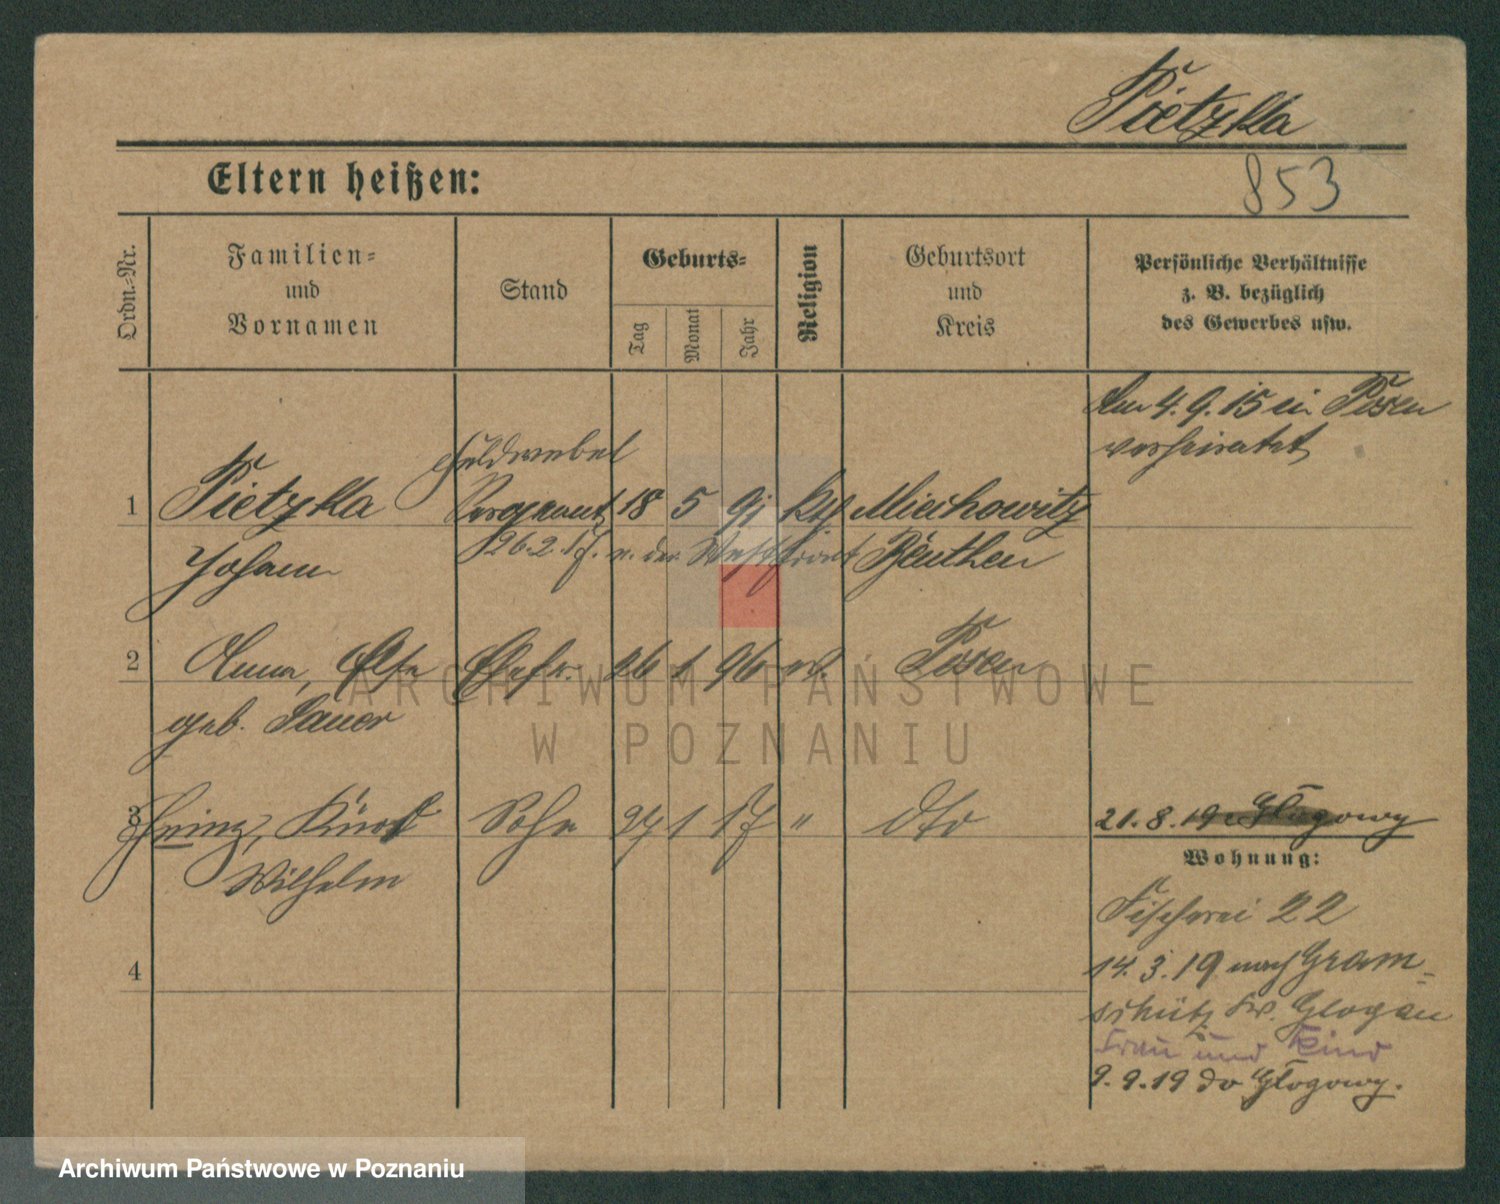 Pietzka
853
Eltern heißen:
Ordn.-Nr.
Familien-
und
Vornamen
Stand
Geburts-
Tag
Monat
Jahr
Religion
Geburtsort
und
Kreis
Persönliche Verhältnisse
z. B. bezüglich
des Gewerbes usw.
Am 4.9.15 in Posen
verheiratet
Feldwebel
1 Pietzka Sergeant 18 5 91 kth Miechowitz
26.2.17. v. der Westfront
Johann Beuthen
2 Anna, Else Ehefr. 26 1 96 Posen
geb. Jauer
3 Heinz, Kurt Sohn 27 1 17 " dto 21.8.19 Głogowy
Wilhelm
Wohnung:
Fischerei 22
4
14.3.19 nach Gram-
schütz Kr. Glogau
Frau und Kind
9.9.19 do Głogowy.
ARCHIWUM PAŃSTWOWE
W POZNANIU
Archiwum Państwowe w Poznaniu